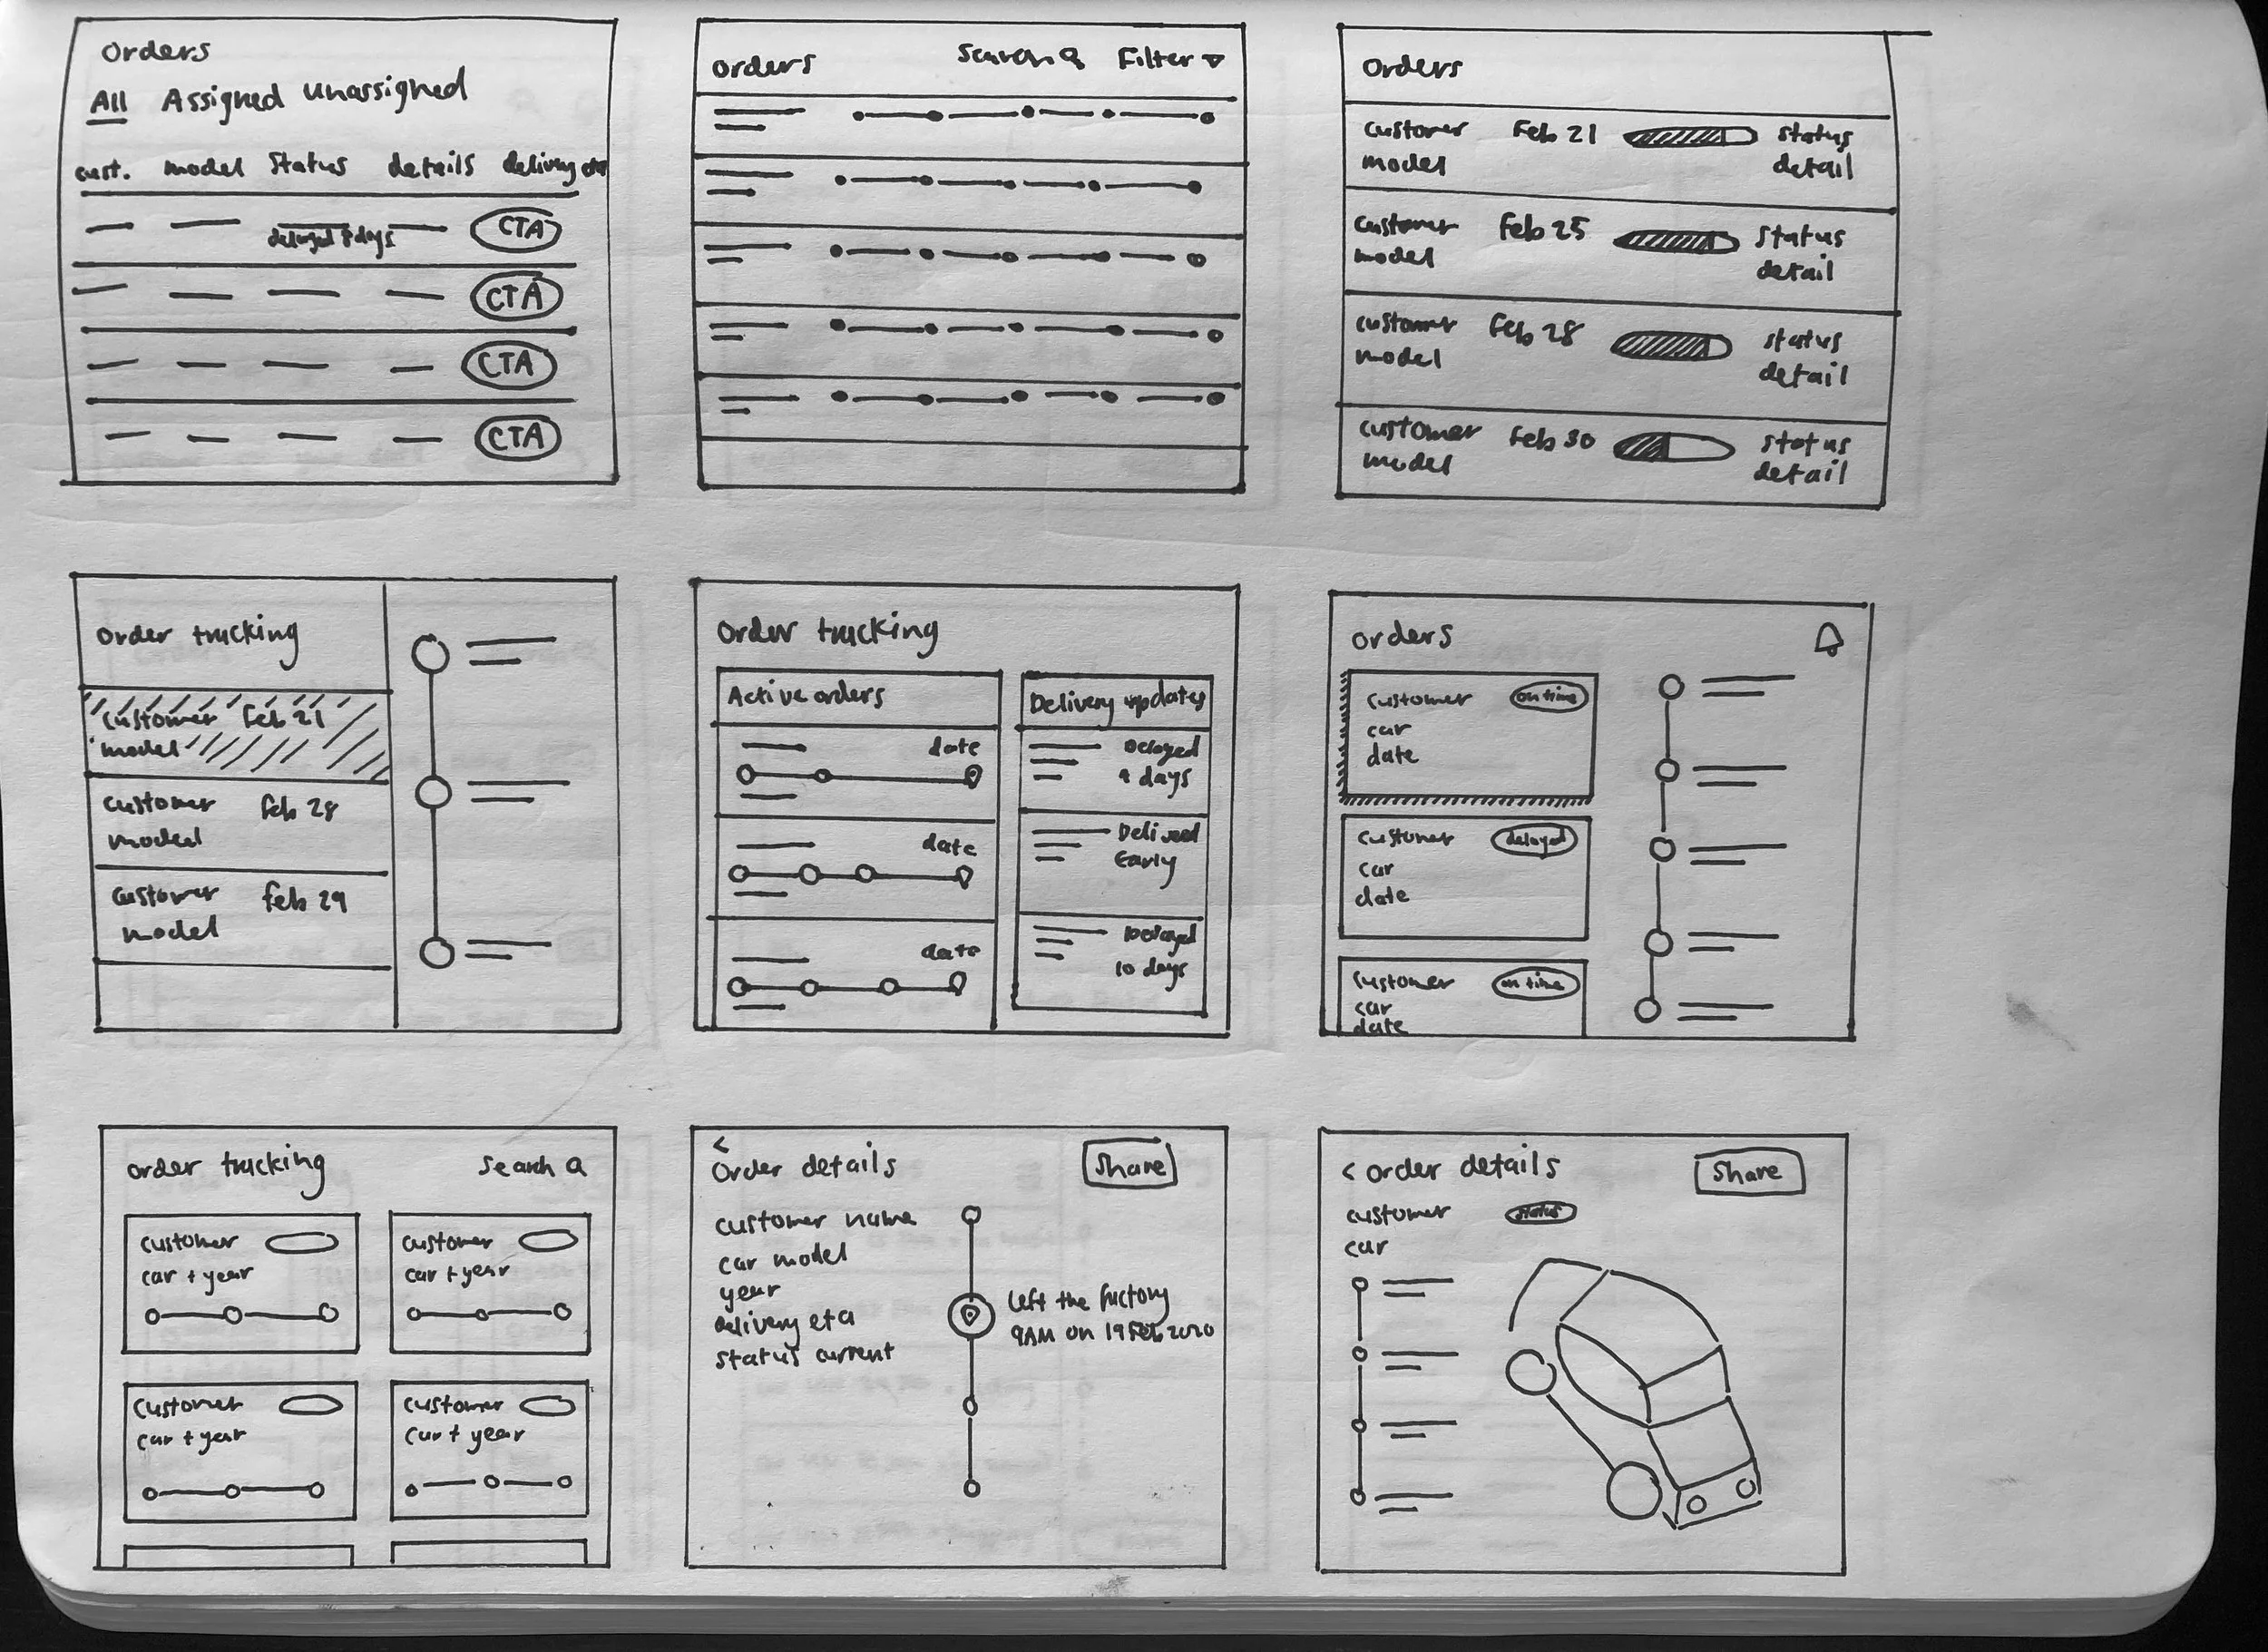 Orders
All Assigned unassigned
cust. model Status details delivery
delayed days
CTA
CTA
CTA
CTA
orders Search Filter
orders
customer Feb 21 status
model detail
customer Feb 25 status
model detail
customer Feb 28 status
model detail
customer Feb 30 status
model detail
order tracking
customer Feb 21
model
customer Feb 28
model
customer feb 29
model
order tracking
Active orders
date
date
date
Delivery updates
Delayed
9 days
Delivered
Early
Delayed
10 days
orders
customer on time
car
date
customer delayed
car
date
customer on time
car
date
order tracking search
customer
car + year
customer
car + year
customer
car + year
customer
car + year
<
Order details Share
customer name
car model
year
delivery eta
status current
left the factory
9AM on 19 Feb 2020
< order details Share
customer status
car